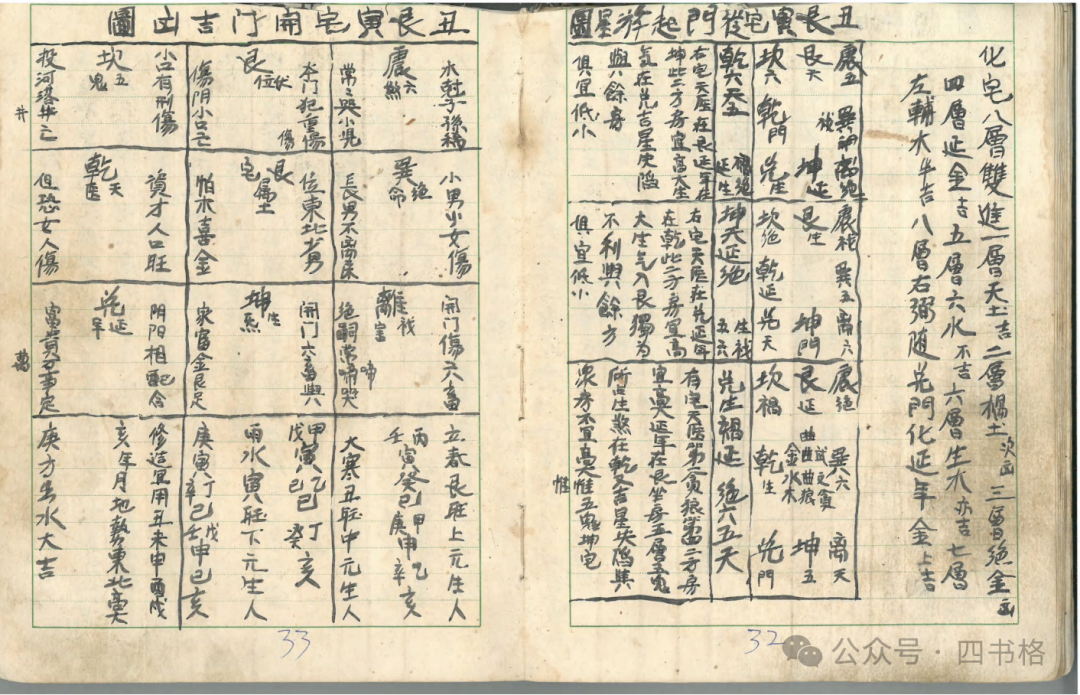 化宅八層雙進一層天土吉二層禍土次凶三層絕金凶
四層延金吉五層六水不吉六層生木亦吉七層
左輔木半吉八層右弼随兑門化延年金上吉
丑艮寅宅從門起游星圖
震五 巽禍 離絕
艮天 坤延
坎六 乾門 兑生
震禍 巽五 離六
艮生 坤門
坎絕 乾延 兑天
震絕 巽六 離天
艮延 坤五
坎禍 乾生 兑門
乾六天五 禍絕延生
坤天延絕 生禍五六
兑生禍延 絕六五天
右宅天医在艮延年在
坤此二方房宜高大生
氣在兑吉星失陷
與餘房
俱宜低小
右宅天医在兑延年
在乾此二方房宜高
大生气入艮獨为
不利與餘方
俱宜低小
宜高延年在艮坐房五層五鬼
所占生煞在乾吉星失陷與
眾房不宜高惟五鬼坤宅
惟
32
丑艮寅宅開门吉凶圖
震六煞
木尅子孫稀
常之哭小児
艮伏位
本门犯重傷
傷阴小口亡
坎五鬼
小口有刑傷
投河落井亡
井
巽絕命
小男少女傷
長男不離床
艮宅属土
位東北少男
怕木喜金
乾天医
資才人口旺
但恐女人傷
離禍害
開门傷六畜
絕嗣常啼哭
啼
坤生氣
開门六畜興
家富金艮足
兑延年
阴阳相配合
富貴萬事定
萬
立春艮旺上元生人
丙寅癸巳甲申乙亥
壬 庚 辛
大寒丑旺中元生人
甲寅乙巳丁亥
戊 己 癸
雨水寅旺下元生人
庚寅丁巳戊申己亥
辛 壬
修造宜用丑未申酉戌
亥年月地勢東北高
庚方出水大吉
33
公众号·四书格